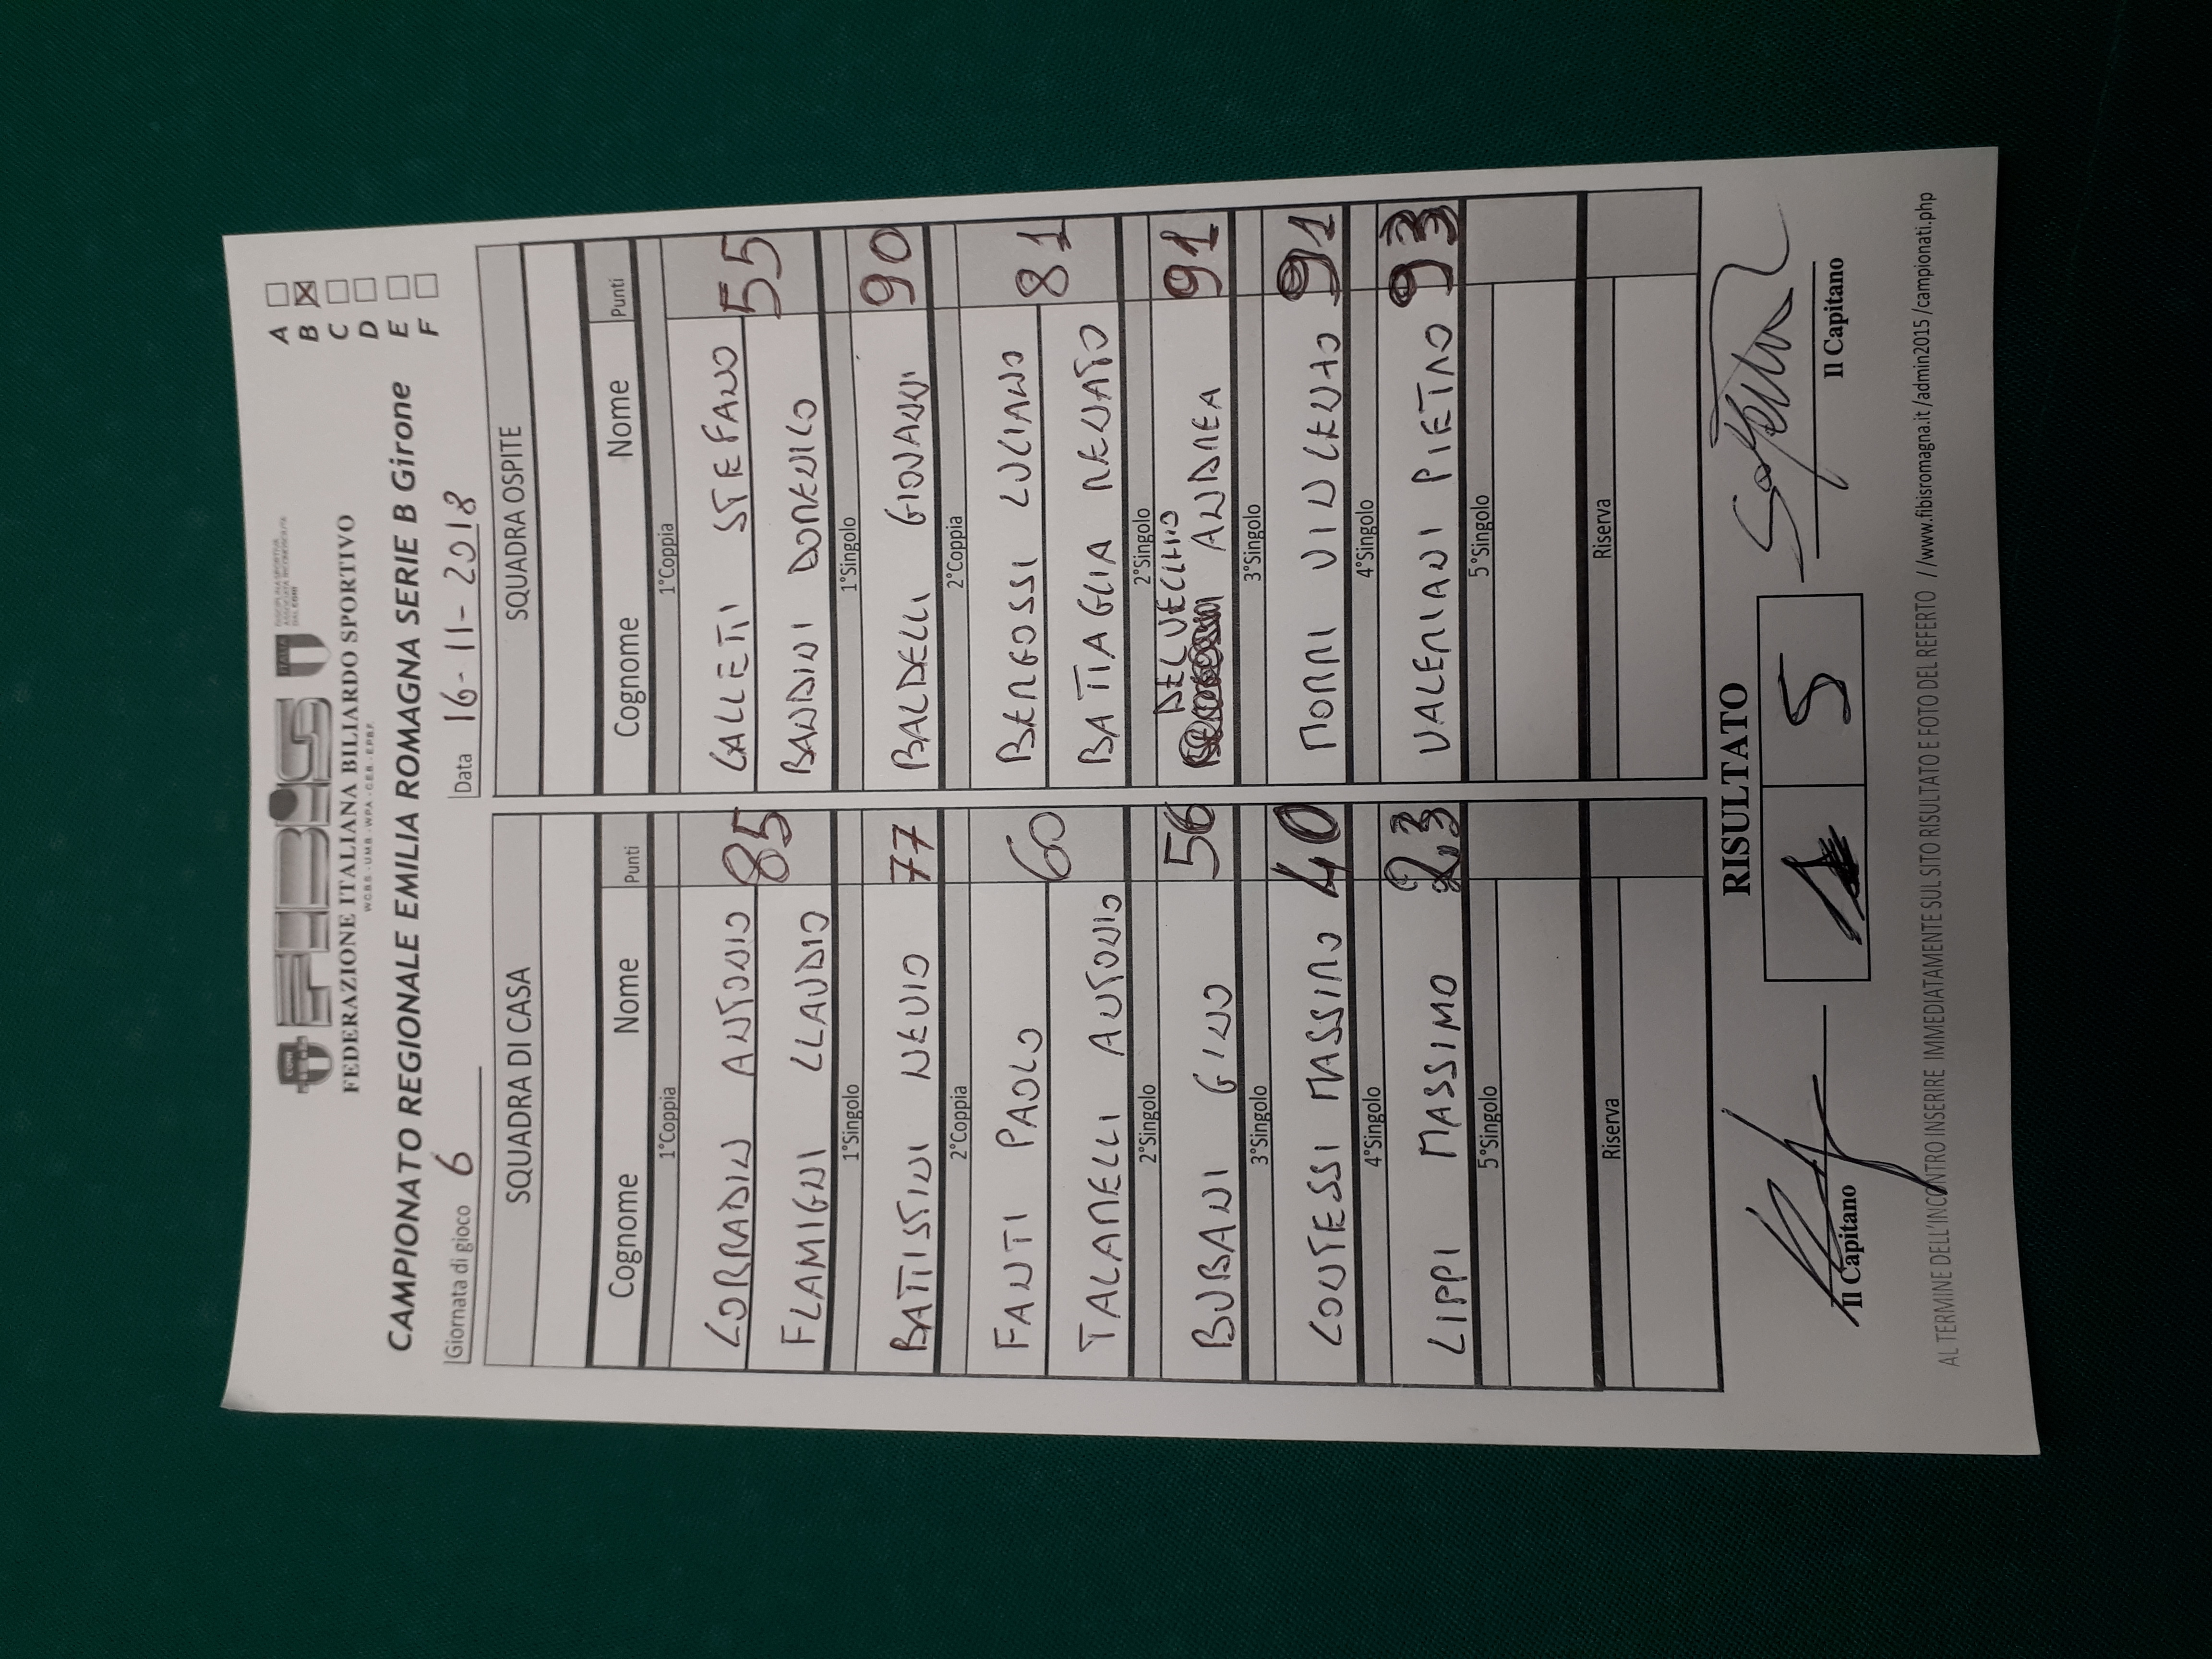 FEDERAZIONE ITALIANA BILIARDO SPORTIVO
W.C.B.S. - U.M.B. - W.P.A. - C.E.B. - E.P.B.F.
CONI
FIBiS
ITALIA
DISCIPLINA SPORTIVA
ASSOCIATA RICONOSCIUTA
DAL CONI
CAMPIONATO REGIONALE EMILIA ROMAGNA SERIE B Girone
A
B
C
D
E
F
Giornata di gioco 6
Data 16-11-2018
SQUADRA DI CASA SQUADRA OSPITE
Cognome Nome Punti Cognome Nome Punti
1°Coppia 1°Coppia
CORRADIN ANTONIO 85 GALLETTI STEFANO 55
FLAMIGNI CLAUDIO BANDINI DOMENICO
1°Singolo 1°Singolo
BATTISTINI NEVIO 77 BALDELLI GIOVANNI 90
2°Coppia 2°Coppia
FANTI PAOLO 60 BERGOSSI LUCIANO 81
TALAMELLI ANTONIO BATTAGLIA RENATO
2°Singolo 2°Singolo
BUBANI GINO 56 DELVECCHIO ANDREA 91
3°Singolo 3°Singolo
CONTESSI MASSIMO 40 MORRI VINCENZO 91
4°Singolo 4°Singolo
LIPPI MASSIMO 23 VALERIANI PIETRO 93
5°Singolo 5°Singolo
Riserva Riserva
RISULTATO
1 5
Il Capitano Il Capitano
AL TERMINE DELL'INCONTRO INSERIRE IMMEDIATAMENTE SUL SITO RISULTATO E FOTO DEL REFERTO //www.fibisromagna.it /admin2015 /campionati.php